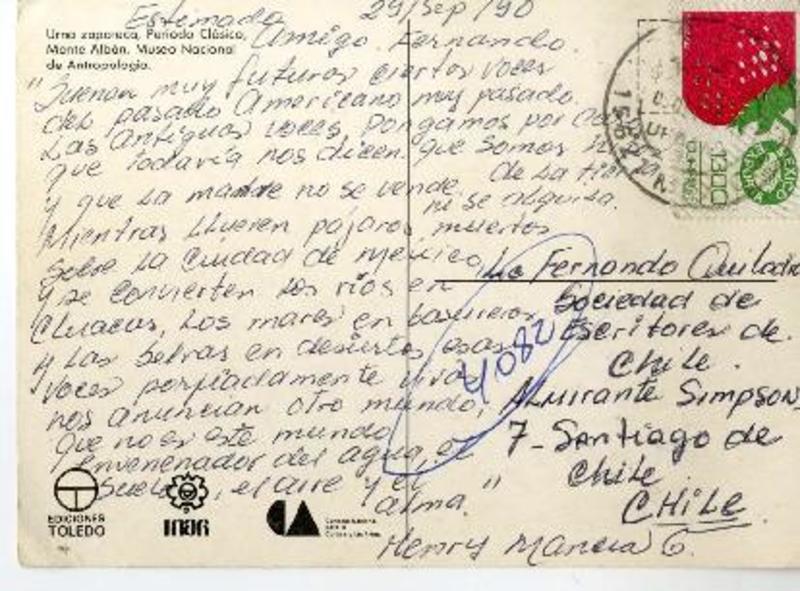 Urna zapoteca, Periodo Clásico,
Monte Albán. Museo Nacional
de Antropología.
29/Sep/90
Estimado
Amigo Fernando.
"Suenan muy futuras ciertas voces
del pasado Americano muy pasado.
Las Antiguas voces, pongamos por
que todavía nos dicen que somos
de la tierra
y que la madre no se vende
ni se alquila.
Mientras llueven pájaros muertos
sobre la ciudad de méxico,
y se convierten los ríos en
cluacas, los mares en basureros
y las selvas en desiertos esas
voces porfiadamente vivas
nos anuncian otro mundo,
que no es este mundo
envenenador del agua, el
suelo, el aire y el
alma."
Henry Mancia G.
Fernando Quilodrán
Sociedad de
Escritores de
Chile.
ALMIRANTE SIMPSON
7-Santiago de
Chile
CHILE.
4082
1300
MEXICO
EXPORTA
EDICIONES
TOLEDO
INAH
CA